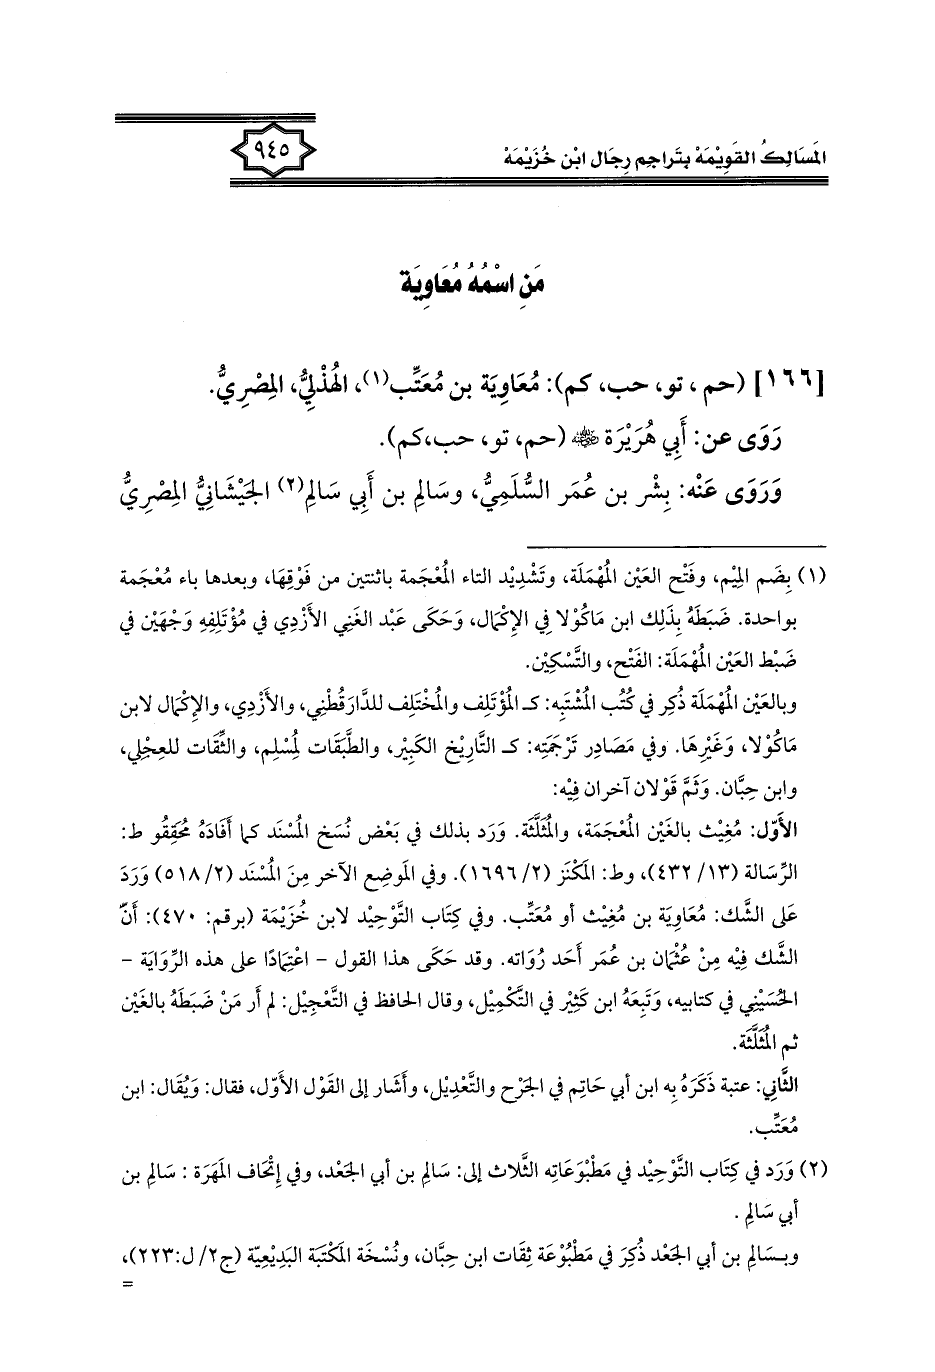 المَسَالِكُ القَوِيْمَهْ بِتَرَاجِمِ رِجَالِ ابْنِ خُزَيْمَهْ
٩٤٥
مَنِ اسْمُهُ مُعَاوِيَة
[١٦٦] (حم، تو، حب، كم): مُعَاوِيَة بن مُعَتِّب(١)، الهُذْلِيُّ، المِصْرِيُّ.
رَوَى عن: أَبِي هُرَيْرَة ﵁ (حم، تو، حب،كم).
وَرَوَى عَنْه: بِشْر بن عُمَر السُّلَمِيُّ، وسَالِم بن أَبي سَالِم(٢) الجَيْشَانِيُّ المِصْرِيُّ
(١) بِضَم المِيْم، وفَتْح العَيْن المُهْمَلَة، وتَشْدِيْد التاء المُعْجَمة باثنتين من فَوْقِهَا، وبعدها باء مُعْجَمة
بواحدة. ضَبَطَهُ بِذَلِك ابن مَاكُوْلا فِي الإِكْمَال، وَحَكَى عَبْد الغَنِي الأَزْدِي في مُؤْتَلِفِهِ وَجْهَيْن في
ضَبْط العَيْن المُهْمَلَة: الفَتْح، والتَّسْكِيْن.
وبالعَيْن المُهْمَلَة ذُكِر في كُتُب المُشْتَبِه: كـ المُؤْتَلِف والمُخْتَلِف للدَّارَقُطْنِي، والأَزْدِي، والإِكْمَال لابن
مَاكُوْلا، وَغَيْرِهَا. وفي مَصَادِر تَرْجَمَتِه: كـ التَّارِيْخ الكَبِيْر، والطَّبَقَات لِمُسْلِم، والثِّقَات للعِجْلِي،
وابن حِبَّان. وَثَمَّ قَوْلان آخران فِيْه:
الأَوَّل: مُغِيْث بالغَيْن المُعْجَمَة، والمُثَلَّثَة. وَرَد بذلك في بَعْض نُسَخ المُسْنَد كما أَفَادَهُ مُحَقِّقُو ط:
الرِّسَالة (١٣/ ٤٣٢)، وط: المَكْنَز (٢/ ١٦٩٦). وفي المَوضِع الآخر مِنَ المُسْنَد (٢/ ٥١٨) وَرَدَ
عَلى الشَّك: مُعَاوِيَة بن مُغِيْث أو مُعَتِّب. وفي كِتَاب التَّوْحِيْد لابن خُزَيْمَة (برقم: ٤٧٠): أَنَّ
الشَّك فِيْه مِنْ عُثْمَان بن عُمَر أَحَد رُوَاته. وقد حَكَى هذا القول – اعْتِمَادًا على هذه الرِّوَايَة –
الحُسَيْنِي في كتابيه، وَتَبِعَهُ ابن كَثِيْر في التَّكْمِيْل، وقال الحافظ في التَّعْجِيْل: لم أَر مَنْ ضَبَطَهُ بالغَيْن
ثم المُثَلَّثَة.
الثَّانِي: عتبة ذَكَرَهُ بِه ابن أَبي حَاتِم في الجَرْح والتَّعْدِيْل، وأَشَار إلى القَوْل الأَوَّل، فقال: وَيُقَال: ابن
مُعَتِّب.
(٢) وَرَد في كِتَاب التَّوْحِيْد في مَطْبُوْعَاتِه الثَّلاث إلى: سَالِم بن أَبي الجَعْد، وفي إِتْحَاف المَهَرَة : سَالِم بن
أَبي سَالِم .
وبـسَالِم بن أَبي الجَعْد ذُكِرَ في مَطْبُوْعَة ثِقَات ابن حِبَّان، ونُسْخَة المَكْتَبَة البَدِيْعِيّة (ج٢/ ل:٢٢٣)،
=